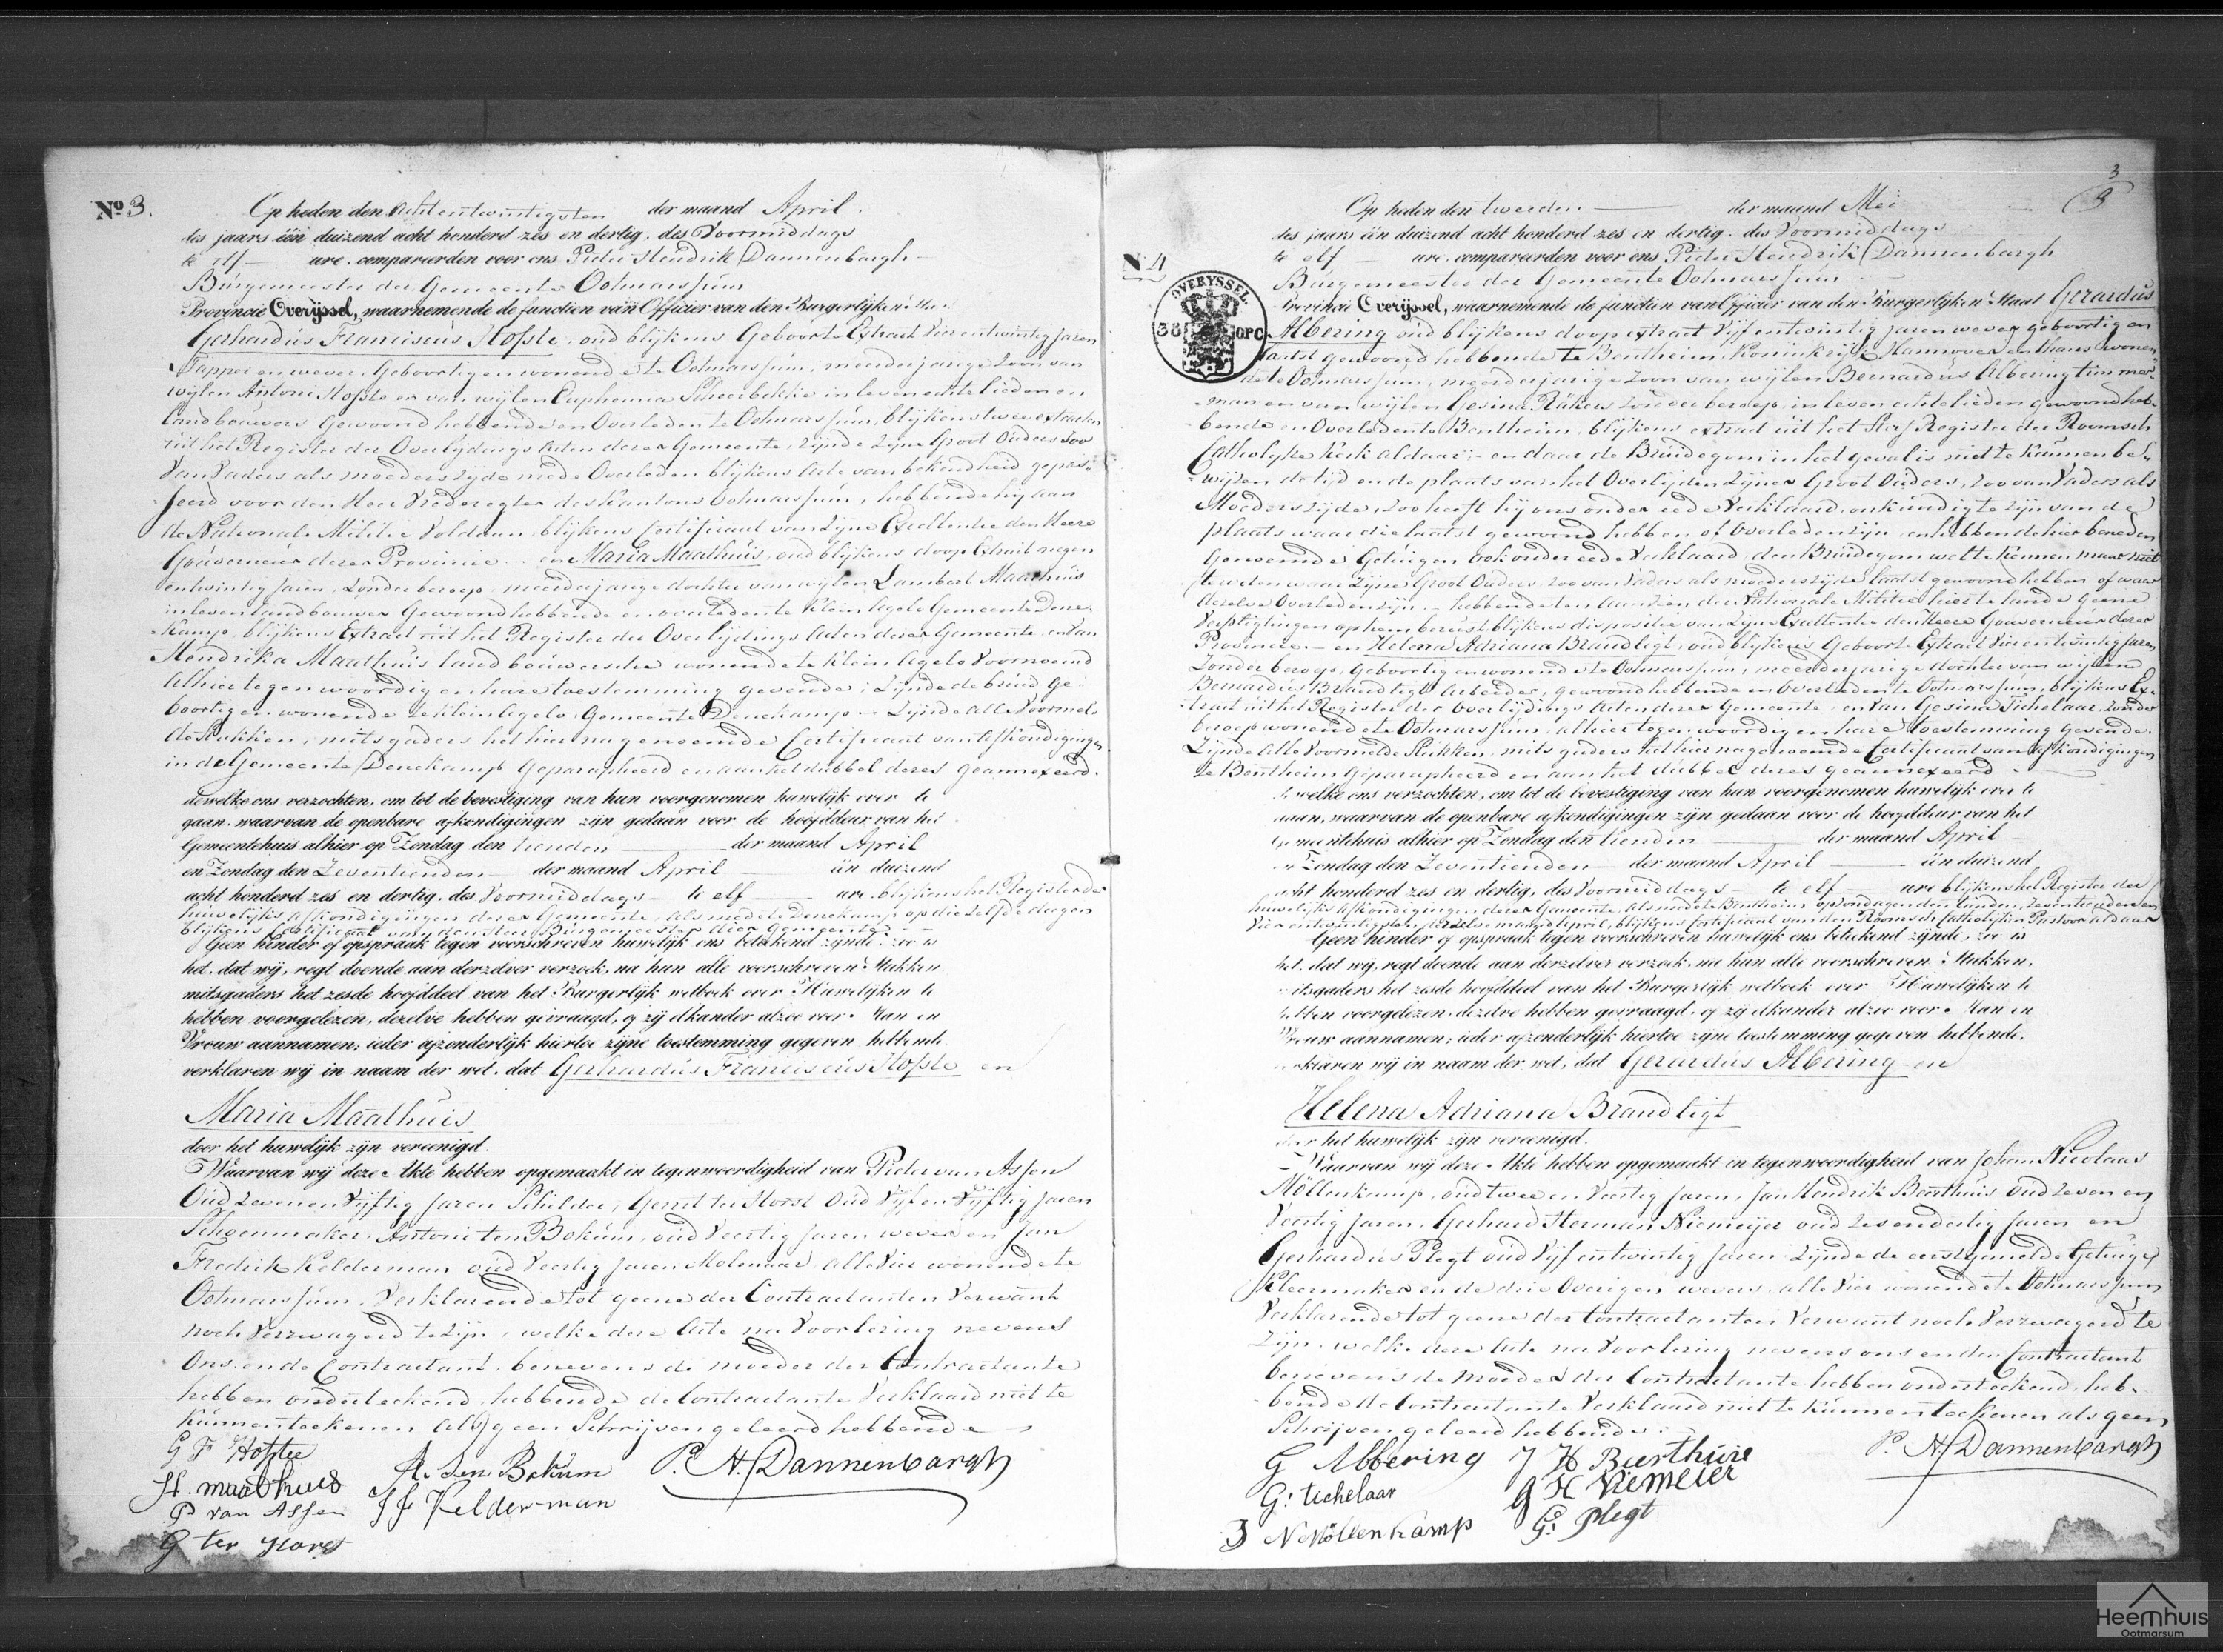 Nº 3.
Op heden den achtentwintigsten der maand April.
des jaars één duizend acht honderd zes en dertig, des Voormiddags
te elf ure, compareerden voor ons Pieter Hendrik Dannenbargh
Burgemeester der Gemeente Ootmarssum
Provincie Overijssel, waarnemende de functien van Officier van den Burgerlijken
Gerhardus Franciscus Hofste, oud blijkens Geboorte Extract Vier entwintig Jaren
Tapper en wever, Geboortig en wonende te Ootmarssum, meerderjarige Zoon van
wijlen Antoni Hofste en van wijlen Euphemia in leven echtelieden en
landbouwers Gewoond hebbende en Overleden te Ootmarssum, blijkens twee extracten
uit het Register der Overlijdings Acten dezer Gemeente, zijnde Zijne Groot Ouders zoo
van Vaders als moeders zijde mede Overleden blijkens Acte van bekendheid gepas-
seerd voor den Heer Vrederegter des Kantons Ootmarssum, hebbende hij aan
de Nationale Militie Voldaan, blijkens Certificaat van Zijne Excellentie den Heere
Gouverneur dezer Provincie - en Maria Maathuis, oud blijkens doop Extract negen
entwintig Jaren, Zonder beroep, meerderjarige dochter van wijlen Lambert Maathuis
in leven landbouwer Gewoond hebbende en overleden te Klein Agelo Gemeente Dene-
kamp, blijkens Extract uit het Register der Overlijdings Acten dezer Gemeente, en van
Hendrika Maathuis landbouwersche wonende te Klein Agelo Voornoemd
Alhier tegenwoordig en hare toestemming gevende; Zijnde de bruid Ge-
boortig en wonende te Klein Agelo Gemeente Denekamp - Zijnde alle Voormel-
de Stukken, mitsgaders het hier nagenoemde Certificaat van Afkondigingen
in de Gemeente Denekamp Geparapheerd en aan het dubbel dezes geannexeerd.
dewelke ons verzochten, om tot de bevestiging van hun voorgenomen huwelijk over te
gaan, waarvan de openbare afkondigingen zijn gedaan voor de hoofddeur van het
Gemeentehuis alhier op Zondag den tienden der maand April
en Zondag den Zeventienden der maand April één duizend
acht honderd zes en dertig, des Voormiddags te elf ure, blijkens het Register der
huwelijks Afkondigingen dezer Gemeente, als mede te Denekamp op die zelfde dagen
blijkens Certificaat van den Heer Burgemeester dier Gemeente
Geen hinder of opspraak tegen voorschreven huwelijk ons bekend zijnde, zoo is
het, dat wij, regt doende aan derzelver verzoek, na hun alle voorschreven Stukken,
mitsgaders het zesde hoofddeel van het Burgerlijk wetboek over Huwelijken te
hebben voorgelezen, dezelve hebben gevraagd, of zij elkander alzoo voor Man en
Vrouw aannamen; ieder afzonderlijk hiertoe zijne toestemming gegeven hebbende
verklaren wij in naam der wet, dat Gerhardus Franciscus Hofste en
Maria Maathuis
door het huwelijk zijn vereenigd.
Waarvan wij deze Akte hebben opgemaakt in tegenwoordigheid van Pieter van Assen
Oud Zeven en Vijftig Jaren Schilder, Gerrit ter Horst Oud Vijf en Vijftig Jaren
Schoenmaker, Antoni ten Bokum, oud Veertig Jaren wever en Jan
Fredrik Kelderman oud Veertig Jaren Molenaar alle Vier wonende te
Ootmarssum, Verklarende tot geene der Contractanten Verwant
noch Verzwagerd te Zijn, welke deze Acte na Voorlezing nevens
Ons en de Contractant, benevens de moeder der Contractante
hebben onderteekend, hebbende de Contractante Verklaard niet te
kunnen teekenen als geen Schrijven geleerd hebbende
G F Hofste
H. maathuis
P van Assen
G ter Horst
A. ten Bokum
J F Kelderman
P. H. Dannenbargh
3
3
N 4
OVERYSSEL.
38
OPC
Op heden den tweeden der maand Mei
des jaars één duizend acht honderd zes en dertig, des Voormiddags
te elf ure, compareerden voor ons Pieter Hendrik Dannenbargh
Burgemeester der Gemeente Ootmarssum
Provincie Overijssel, waarnemende de functien van Officier van den Burgerlijken Staat Gerardus
Albering oud blijkens doop extract Vijf entwintig Jaren wever geboortig en
laatst gewoond hebbende te Bentheim Koninkrijk Hannover en thans wonen-
de te Ootmarssum, meerderjarige Zoon van wijlen Bernardus Albering timmer-
man en van wijlen Gesina Rükers zonder beroep, in leven echtelieden gewoond heb-
bende en Overleden te Bentheim, blijkens extract uit het Sterf Register der Roomsch
Catholyke Kerk aldaar; en daar de Bruidegom in het geval is niet te kunnen be-
wijzen de tijd en de plaats van het Overlijden Zijner Groot Ouders, zoo van Vaders als
Moeders zijde, Zoo heeft hij ons onder eede Verklaard, onkundig te zijn van de
plaats waar die laatst gewoond hebben of Overleden zijn, en hebben de hier beneden
Genoemde Getuigen ook onder eede Verklaard, den Bruidegom wel te kennen, maar niet
te weten waar Zijne Groot Ouders zoo van Vaders als moeders zijde laatst gewoond hebben of waar
dezelve Overleden zijn, - hebbende ten aanzien der Nationale Militie hier te lande geene
Verpligtingen op hem berust, blijkens dispositie van Zijne Excellentie den Heere Gouverneur dezer
Provincie - en Helena Adriana Brandligt, oud blijkens Geboorte Extract Vier en twintig Jaren
Zonder beroep, Geboortig en wonende te Ootmarssum, meerderjarige dochter van wijlen
Bernardus Brandligt Arbeider, gewoond hebbende en Overleden te Ootmarssum, blijkens Ex-
tract uit het Register der Overlijdings Acten dezer Gemeente, en van Gesina Tichelaar, zonder
beroep wonende te Ootmarssum, alhier tegenwoordig en hare toestemming gevende.
Zijnde Alle Voormelde Stukken, mitsgaders het hier nagenoemde Certificaat van Afkondigingen
te Bentheim Geparapheerd en aan het dubbel dezes geannexeerd
welke ons verzochten, om tot de bevestiging van hun voorgenomen huwelijk over te
gaan, waarvan de openbare afkondigingen zijn gedaan voor de hoofddeur van het
Gemeentehuis alhier op Zondag den tienden der maand April
en Zondag den Zeventienden der maand April één duizend
acht honderd zes en dertig, des Voormiddags te elf ure blijkens het Register der
huwelijks Afkondigingen dezer Gemeente, als mede te Bentheim op Zondagen den tienden, zeventienden en
Vier entwintigsten derzelve maand April, blijkens Certificaat van den Roomsch Catholijken Pastoor aldaar
Geen hinder of opspraak tegen voorschreven huwelijk ons bekend zijnde, zoo is
het, dat wij, regt doende aan derzelver verzoek, na hun alle voorschreven Stukken,
mitsgaders het zesde hoofddeel van het Burgerlijk wetboek over Huwelijken te
hebben voorgelezen, dezelve hebben gevraagd, of zij elkander alzoo voor Man en
Vrouw aannamen; ieder afzonderlijk hiertoe zijne toestemming gegeven hebbende,
verklaren wij in naam der wet, dat Gerardus Albering en
Helena Adriana Brandligt
door het huwelijk zijn vereenigd.
Waarvan wij deze Akte hebben opgemaakt in tegenwoordigheid van Johan Nicolaas
Möllenkamp, oud twee en Veertig Jaren, Jan Hendrik Beerthuis Oud Zeven en
Veertig Jaren, Gerhard Herman Niemeijer oud Zes en dertig Jaren en
Gerhardus Plegt oud Vijf entwintig Jaren Zijnde de eerstgemelde Getuige
Kleermaker en de drie Overigen wevers, alle Vier wonende te Ootmarssum
Verklarende tot geene der Contractanten Verwant noch Verzwagerd te
Zijn, welke deze Acte na Voorlezing nevens ons en den Contractant
benevens de Moeder der Contractante hebben onderteekend, heb-
bende de Contractante Verklaard niet te kunnen teekenen als geen
Schrijven geleerd hebbende.
G Albering
G: tichelaar
J N Möllenkamp
J H Beerthuis
G H Niemeier
G: Plegt
P. H. Dannenbargh
Heemhuis
Ootmarsum